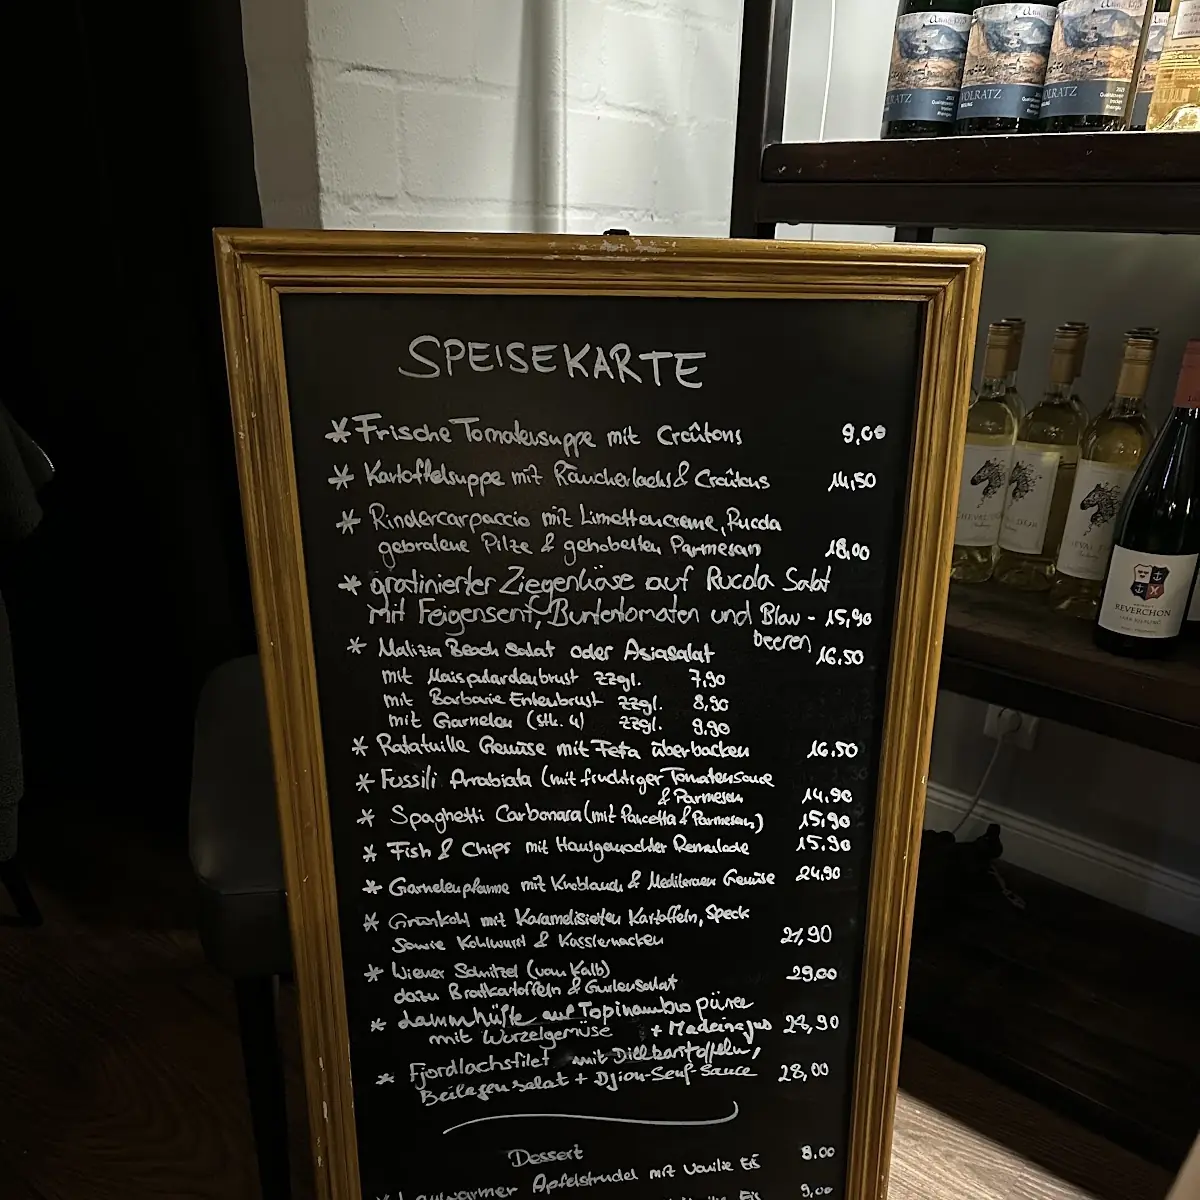 VOLRATZ
VOLRATZ
SPEISEKARTE
* Frische Tomatensuppe mit Croûtons 9,00
* Kartoffelsuppe mit Räucherlachs & Croûtons 14,50
* Rindercarpaccio mit Limettencreme, Rucola
gebratene Pilze & gehobelten Parmesan 18,00
* gratinierter Ziegenkäse auf Rucola Salat
mit Feigensenf, Buntetomaten und Blau- 15,90
beeren
* Malizia Beach Salat oder Asiasalat 16.50
mit Maispoulardenbrust zzgl. 7,90
mit Barbarie Entenbrust zzgl. 8,90
mit Garnelen (Stk. 4) zzgl. 9.90
* Ratatuille Gemüse mit Feta überbacken 16.50
* Fussili Arrabiata (mit fruchtiger Tomatensauce
& Parmesan 14.90
* Spaghetti Carbonara (mit Pancetta & Parmesan) 15.90
* Fish & Chips mit Hausgemachter Remulade 15.90
* Garnelenpfanne mit Knoblauch & Mediteranen Gemüse 24,90
* Grünkohl mit Karamelisierten Kartoffeln, Speck
sowie Kohlwurst & Kasslernacken 21,90
* Wiener Schnitzel (vom Kalb) 29,00
dazu Bratkartoffeln & Gurkensalat
* Lammhüfte auf Topinambur püree
mit Wurzelgemüse + Madeirajus 28,90
* Fjordlachsfilet mit Dillkartoffeln,
Beilagensalat + Djion-Senf-Sauce 28,00
Dessert 8.00
Apfelstrudel mit Vanille Eis
Eis 9,00
REVERCHON